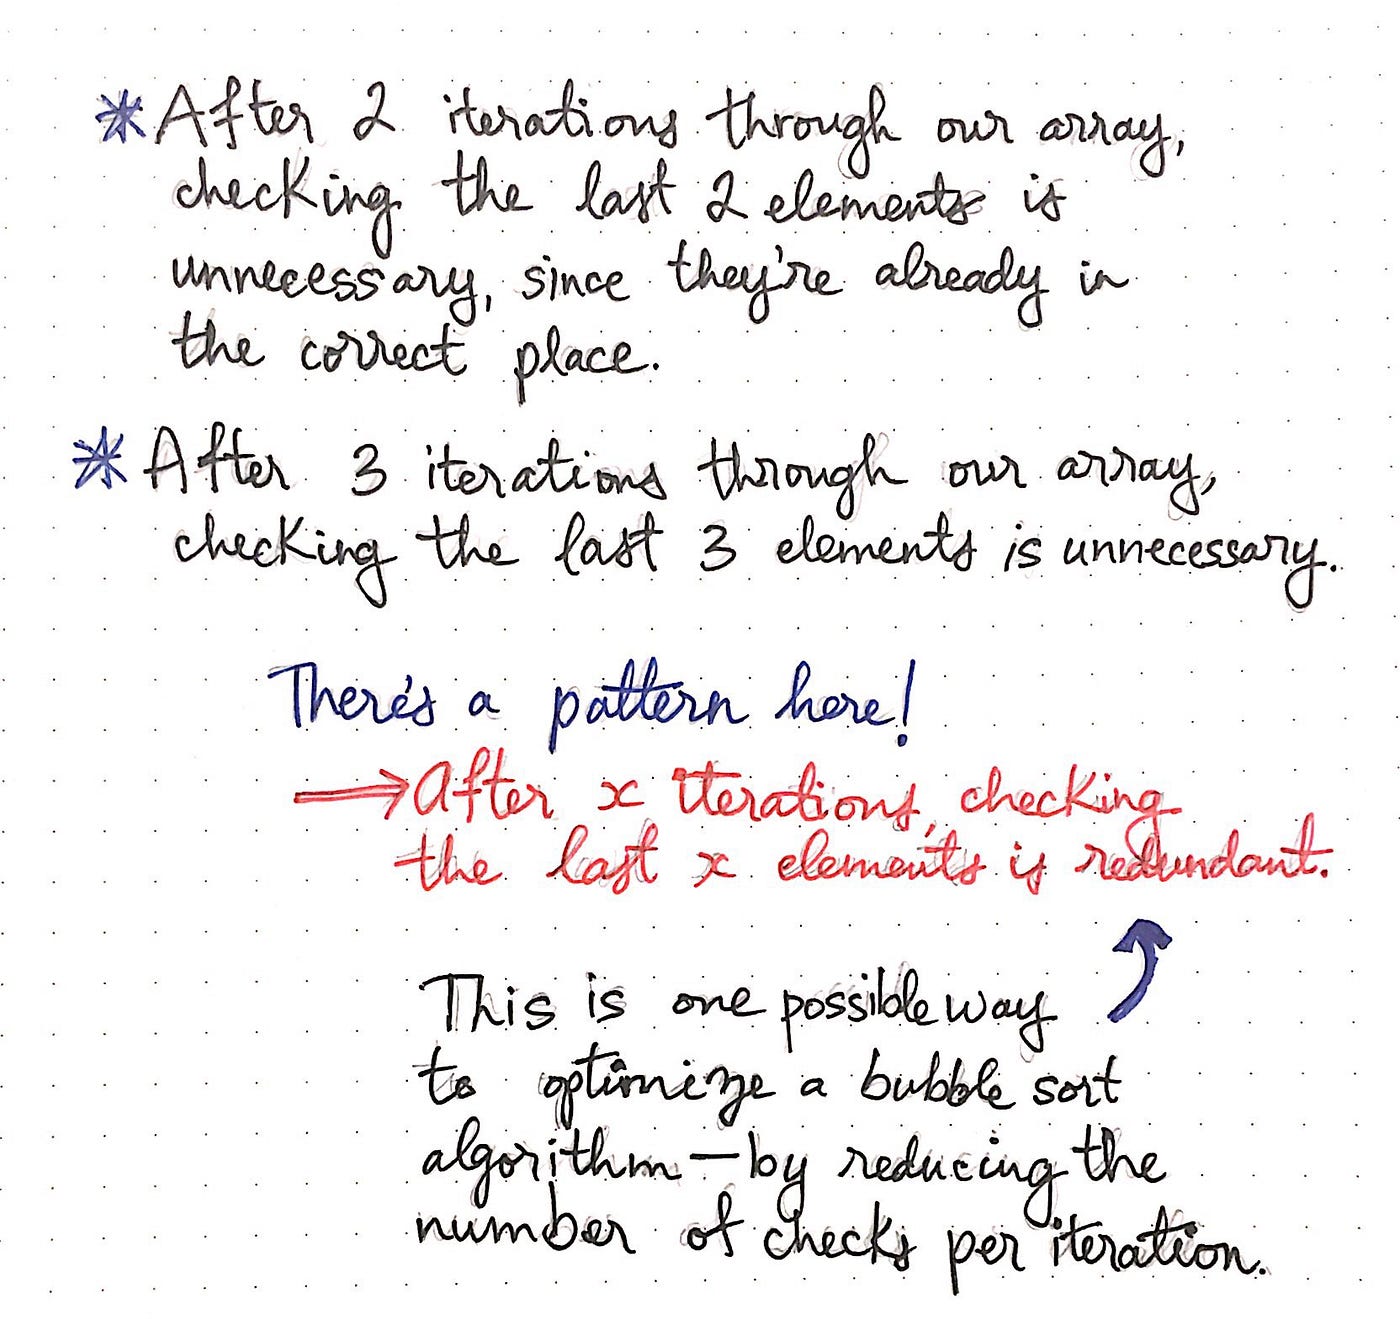 * After 2 iterations through our array,
checking the last 2 elements is
unnecessary, since they're already in
the correct place.
* After 3 iterations through our array,
checking the last 3 elements is unnecessary.
There's a pattern here!
→ After x iterations, checking
the last x elements is redundant.
This is one possible way
to optimize a bubble sort
algorithm — by reducing the
number of checks per iteration.